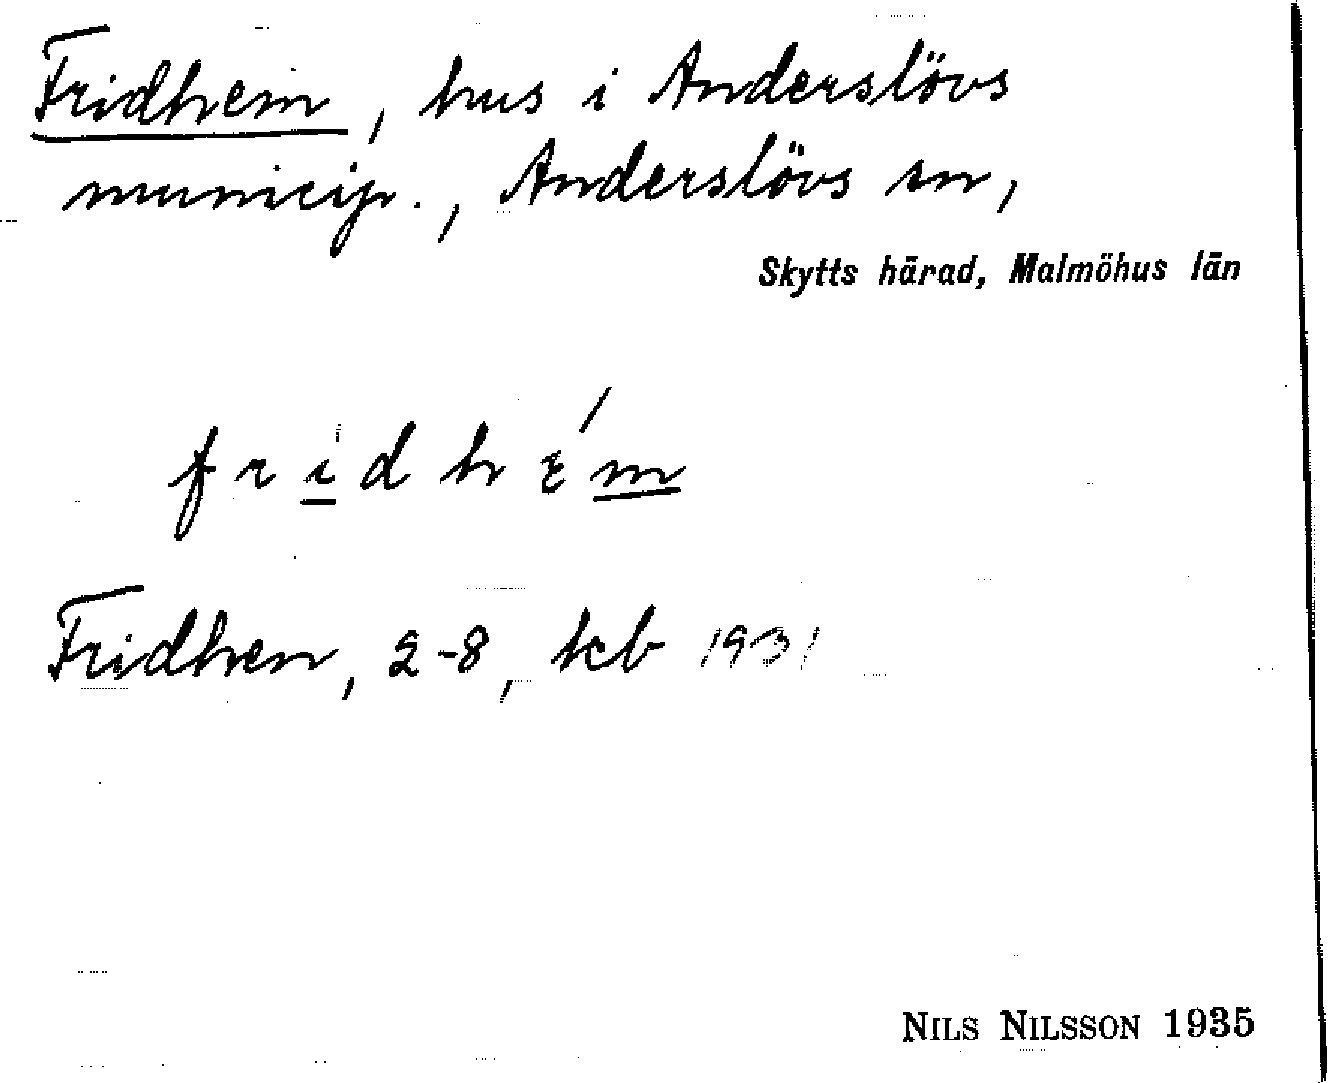 Fridhem, hus i Anderslövs
municip., Anderslövs sn,
Skytts härad, Malmöhus län
fridhɛ́m
Fridhem, 2-8, kcb 1931
NILS NILSSON 1935